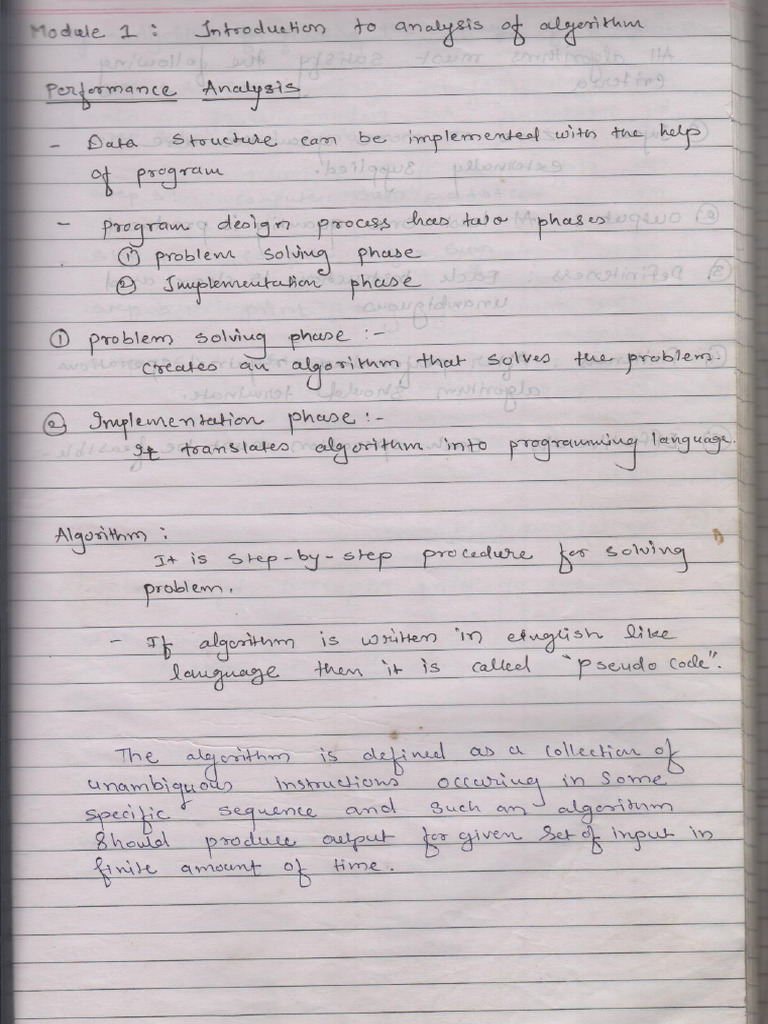 Module 1 : Introduction to analysis of algorithm
Performance Analysis
- Data structure can be implemented with the help
of program
- program design process has two phases
① problem solving phase
② Implementation phase
① problem solving phase :-
creates an algorithm that solves the problem.
② Implementation phase :-
It translates algorithm into programming language.
Algorithm :
It is step-by-step procedure for solving
problem.
- If algorithm is written in english like
language then it is called "pseudo code".
The algorithm is defined as a collection of
unambiguous instructions occuring in some
specific sequence and such an algorithm
should produce output for given set of input in
finite amount of time.